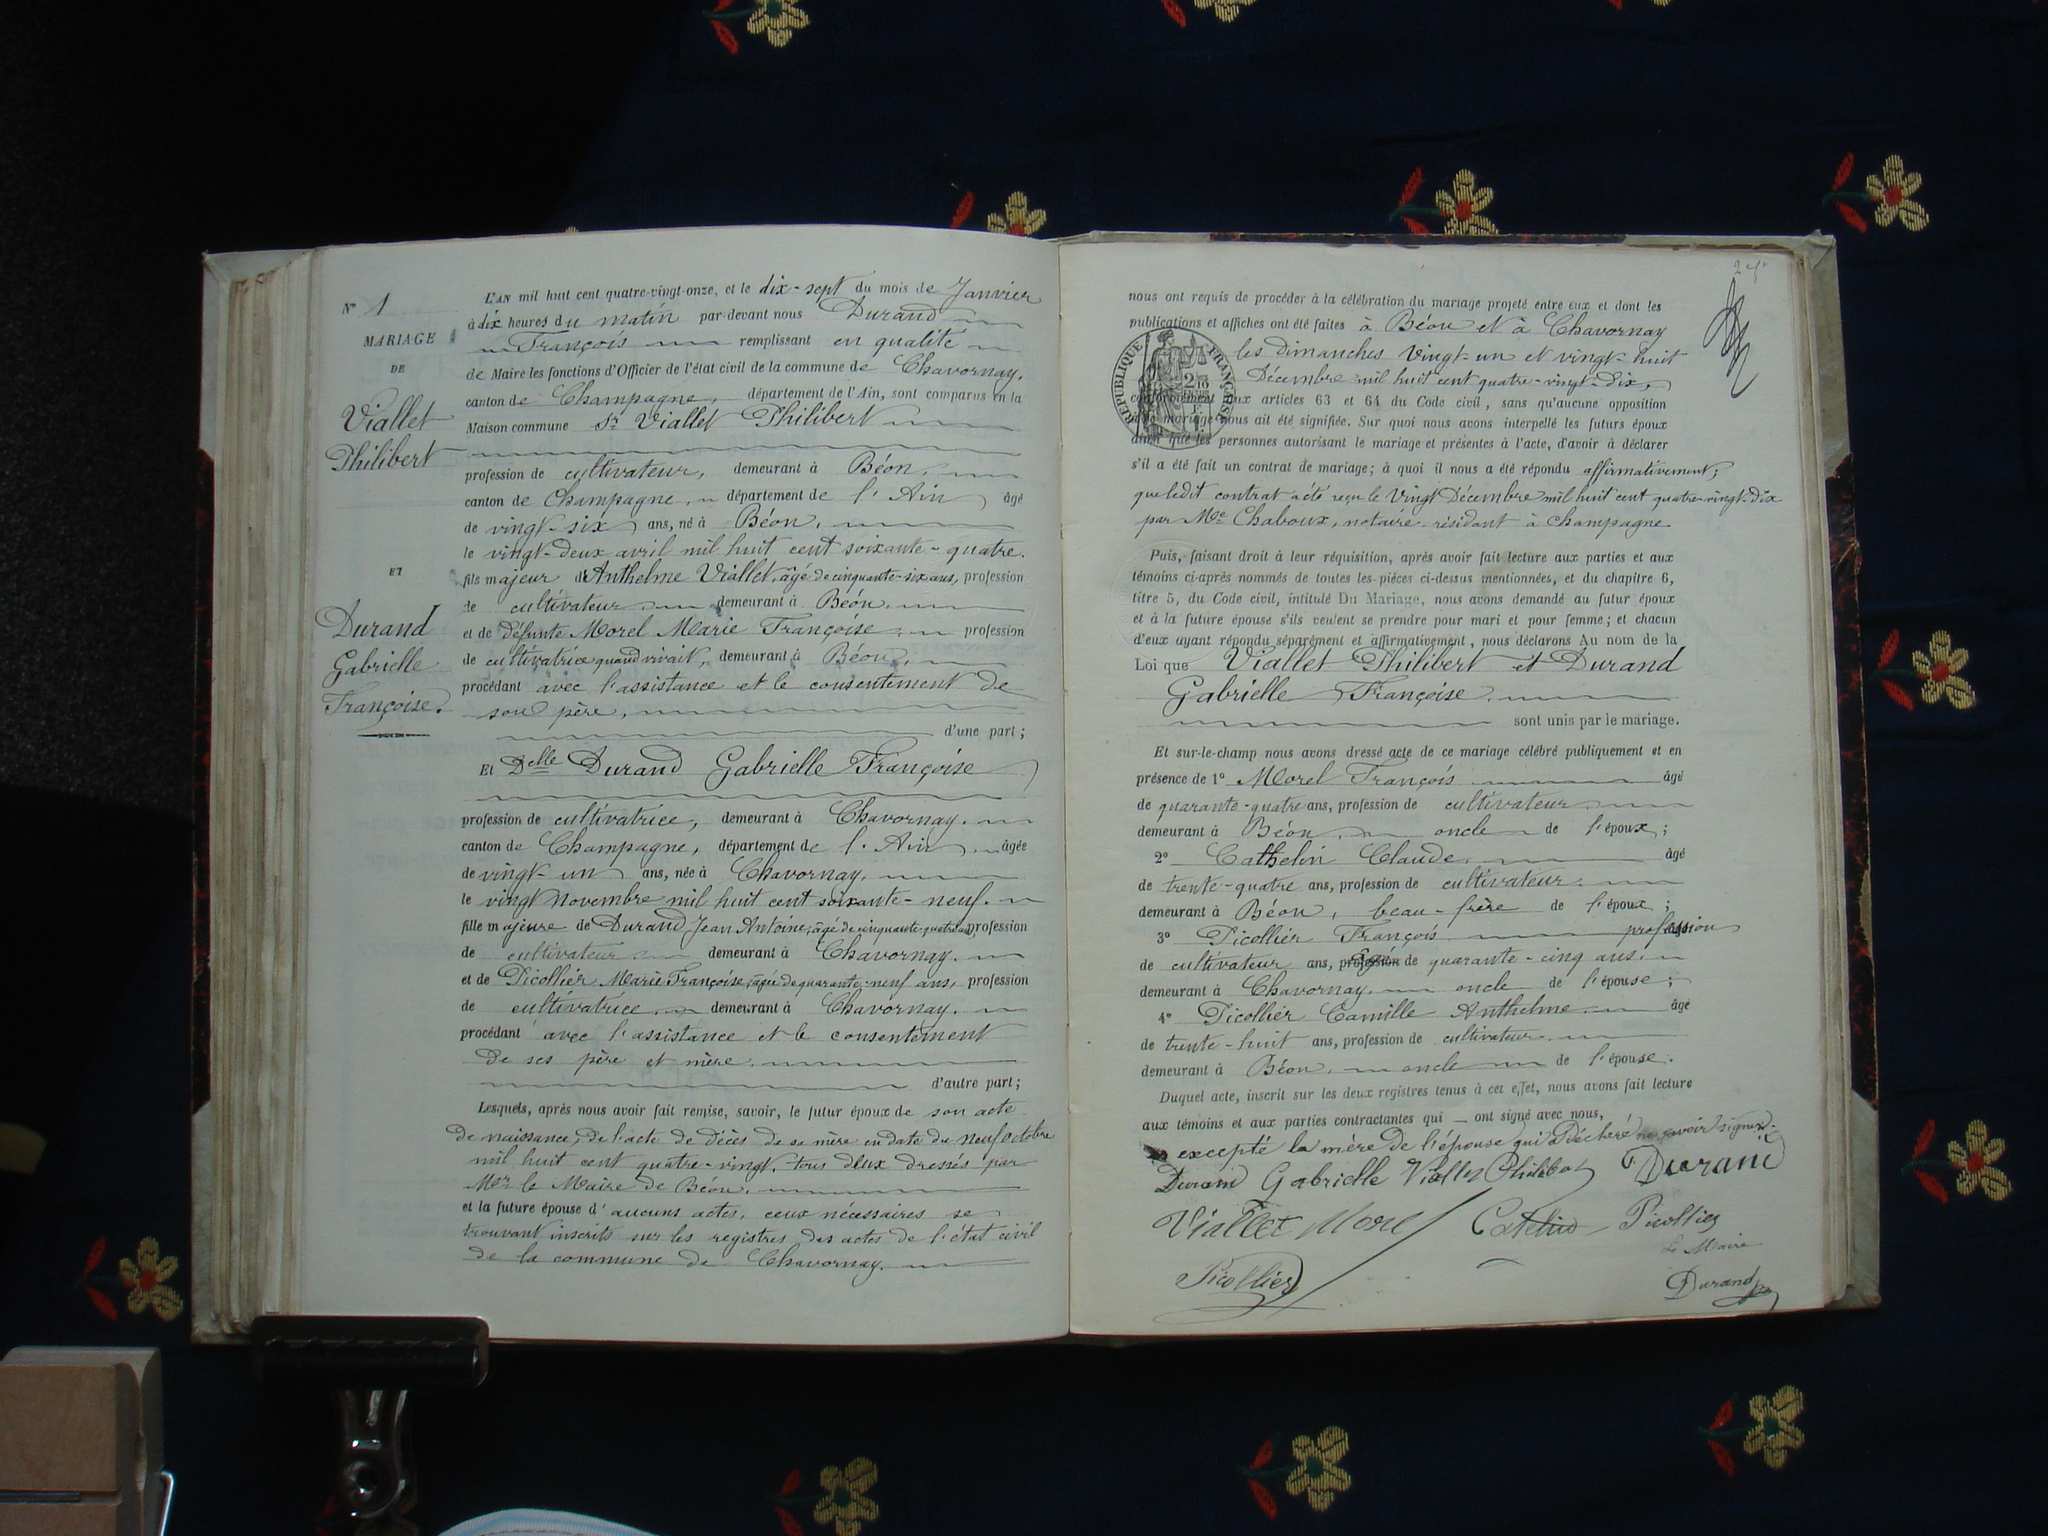 N° 1
MARIAGE
DE
Viallet
Philibert
ET
Durand
Gabrielle
Françoise.
L'AN mil huit cent quatre-vingt-onze, et le dix-sept du mois de Janvier
à dix heures du matin par-devant nous Durand
François remplissant en qualité
de Maire les fonctions d'Officier de l'état civil de la commune de Chavornay,
canton de Champagne, département de l'Ain, sont comparus en la
Maison commune Sr Viallet Philibert
profession de cultivateur, demeurant à Béon,
canton de Champagne, département de l'Ain âgé
de vingt-six ans, né à Béon,
le vingt-deux avril mil huit cent soixante-quatre.
fils majeur d'Anthelme Viallet, âgé de cinquante-six ans, profession
de cultivateur, demeurant à Béon,
et de défunte Morel Marie Françoise, profession
de cultivatrice quand vivait, demeurant à Béon,
procédant avec l'assistance et le consentement de
son père,
d'une part;
Et Delle Durand Gabrielle Françoise
profession de cultivatrice, demeurant à Chavornay,
canton de Champagne, département de l'Ain, âgée
de vingt-un ans, née à Chavornay,
le vingt novembre mil huit cent soixante-neuf.
fille majeure de Durand Jean Antoine, âgé de cinquante-quatre ans, profession
de cultivateur demeurant à Chavornay,
et de Picollier Marie Françoise, âgée de quarante-neuf ans, profession
de cultivatrice, demeurant à Chavornay,
procédant avec l'assistance et le consentement
de ses père et mère,
d'autre part;
Lesquels, après nous avoir fait remise, savoir, le futur époux de son acte
de naissance, de l'acte de décès de sa mère en date du neuf octobre
mil huit cent quatre-vingt, tous deux dressés par
Mr le Maire de Béon,
et la future épouse d'aucuns actes, ceux nécessaires se
trouvant inscrits sur les registres des actes de l'état civil
de la commune de Chavornay.
nous ont requis de procéder à la célébration du mariage projeté entre eux et dont les
publications et affiches ont été faites à Béon et à Chavornay
les dimanches vingt-un et vingt-huit
Décembre mil huit cent quatre-vingt-dix,
conformément aux articles 63 et 64 du Code civil, sans qu'aucune opposition
audit mariage nous ait été signifiée. Sur quoi nous avons interpellé les futurs époux
ainsi que les personnes autorisant le mariage et présentes à l'acte, d'avoir à déclarer
s'il a été fait un contrat de mariage; à quoi il nous a été répondu affirmativement;
que ledit contrat a été reçu le vingt Décembre mil huit cent quatre-vingt-dix
par Me Chaboux, notaire résidant à Champagne
RÉPUBLIQUE FRANÇAISE
Puis, faisant droit à leur réquisition, après avoir fait lecture aux parties et aux
témoins ci-après nommés de toutes les pièces ci-dessus mentionnées, et du chapitre 6,
titre 5, du Code civil, intitulé Du Mariage, nous avons demandé au futur époux
et à la future épouse s'ils veulent se prendre pour mari et pour femme; et chacun
d'eux ayant répondu séparément et affirmativement, nous déclarons Au nom de la
Loi que Viallet Philibert et Durand
Gabrielle Françoise.
sont unis par le mariage.
Et sur-le-champ nous avons dressé acte de ce mariage célébré publiquement et en
présence de 1° Morel François âgé
de quarante-quatre ans, profession de cultivateur
demeurant à Béon, oncle de l'époux;
2° Cathelin Claude, âgé
de trente-quatre ans, profession de cultivateur
demeurant à Béon, beau-frère de l'époux;
3° Picollier François profession
de cultivateur ans, âgé de quarante-cinq ans,
demeurant à Chavornay, oncle de l'épouse;
4° Picollier Camille Anthelme âgé
de trente-huit ans, profession de cultivateur
demeurant à Béon, oncle de l'épouse.
Duquel acte, inscrit sur les deux registres tenus à cet effet, nous avons fait lecture
aux témoins et aux parties contractantes qui ont signé avec nous,
excepté la mère de l'épouse qui a déclaré ne savoir signer.
Durand Gabrielle Viallet Philibert Durand
Viallet Morel Catelin Picollier
Le Maire
Picollier
Durand